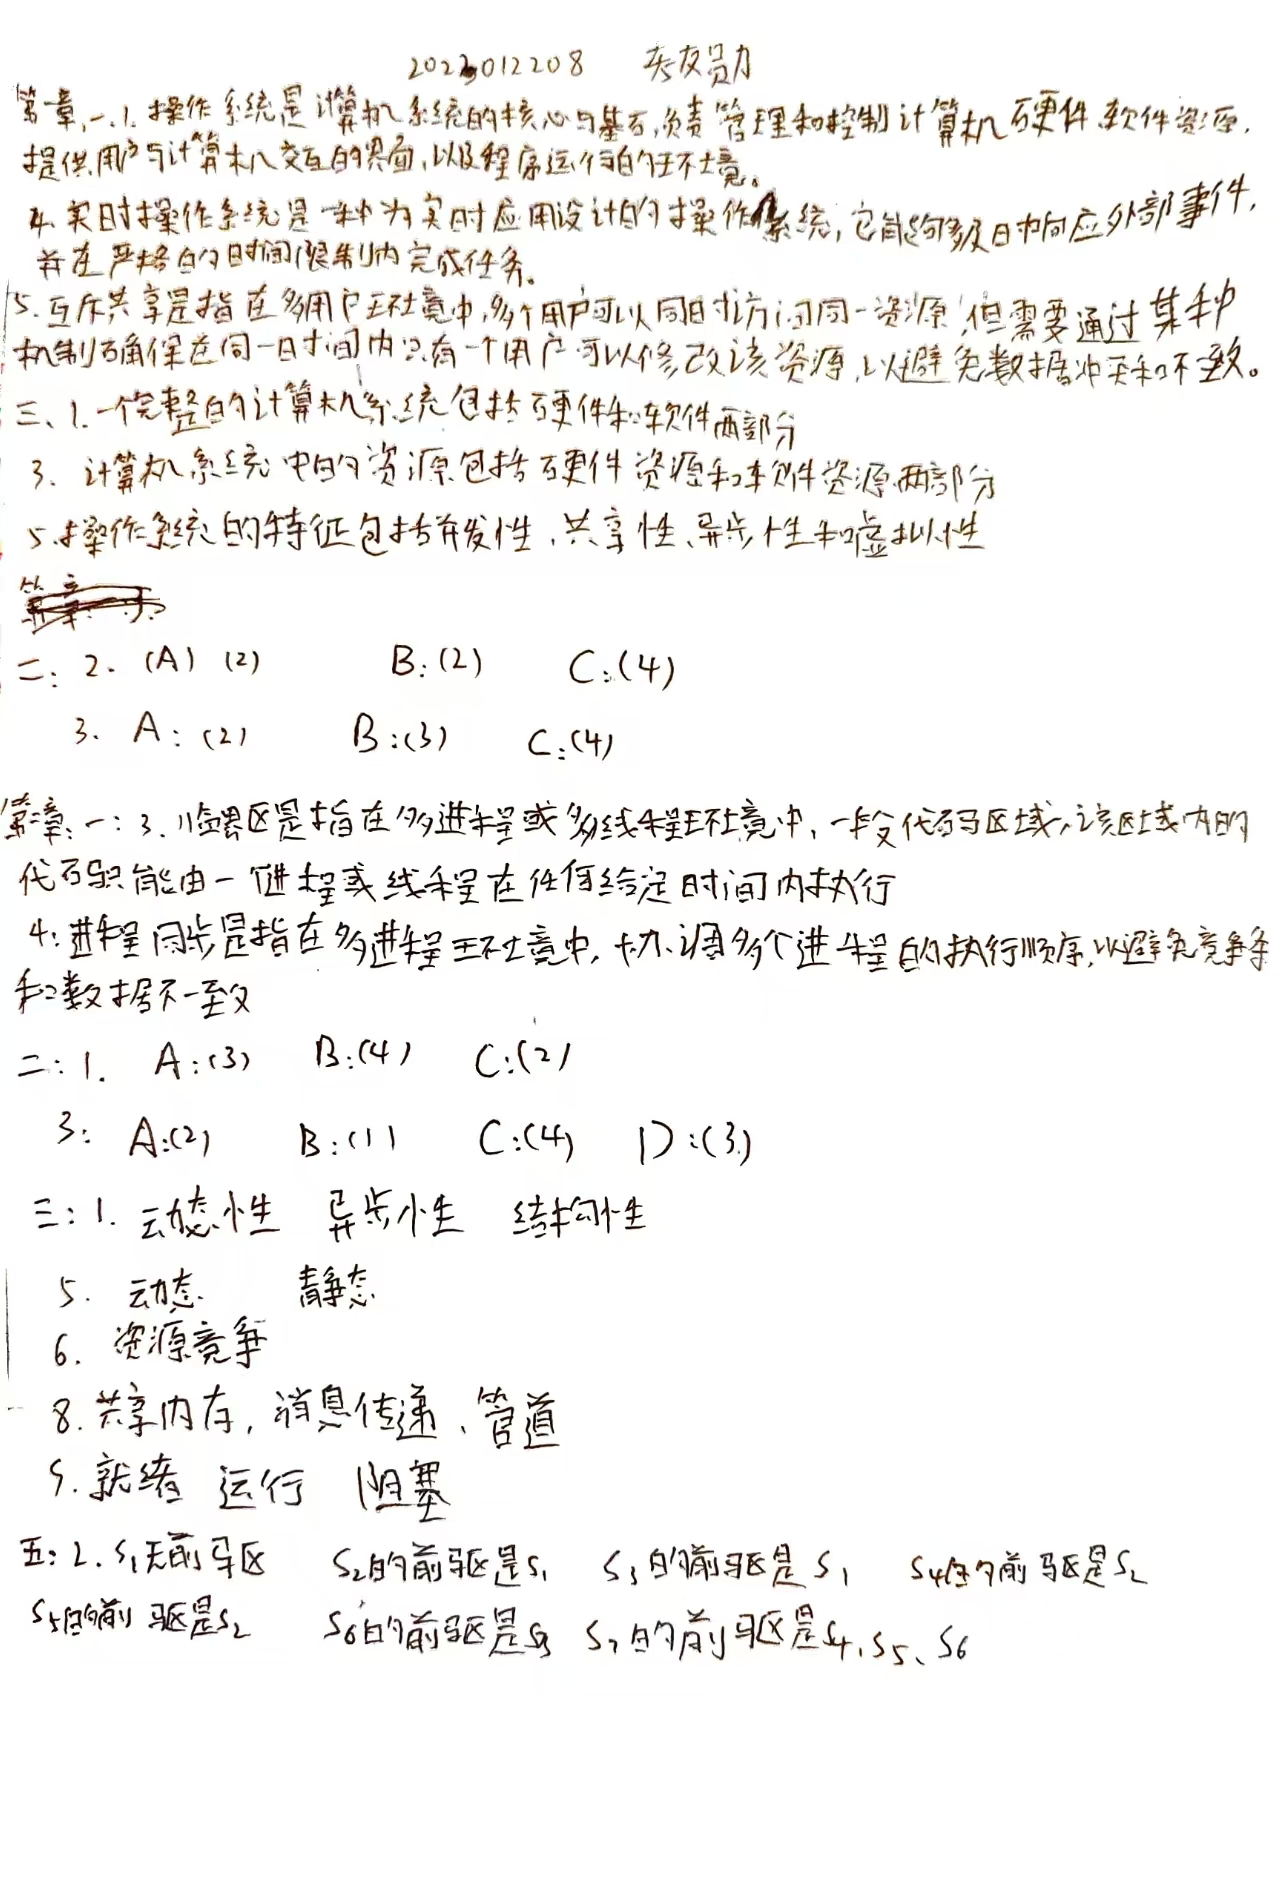 2023012208
第章,一.1.操作系统是计算机系统的核心与基石,负责管理和控制计算机硬件、软件资源,
提供用户与计算机交互的界面,以及程序运行的环境。
4.实时操作系统是一种为实时应用设计的操作系统,它能够及时响应外部事件,
并在严格的时间限制内完成任务。
5.互斥共享是指在多用户环境中,多个用户可以同时访问同一资源,但需要通过某种
机制确保在同一时间内只有一个用户可以修改该资源,以避免数据冲突和不致。
三、1.一个完整的计算机系统包括硬件和软件两部分
3.计算机系统中的资源包括硬件资源和软件资源两部分
5.操作系统的特征包括并发性、共享性、异步性和虚拟性
二:2.(A)(2) B:(2) C:(4)
3.A:(2) B:(3) C:(4)
第二章:一:3.临界区是指在多进程或多线程环境中,一段代码区域,该区域内的
代码只能由一个进程或线程在任何给定时间内执行
4:进程同步是指在多进程环境中,协调多个进程的执行顺序,以避免竞争条
和数据不一致
二:1. A:(3) B:(4) C:(2)
3: A:(2) B:(1) C:(4) D:(3)
三:1.动态性 异步性 结构性
5.动态 静态
6.资源竞争
8.共享内存,消息传递、管道
9.就绪 运行 阻塞
五:2.S1无前驱 S2的前驱是S1 S3的前驱是S1 S4的前驱是S2
S5的前驱是S2 S6的前驱是S3 S7的前驱是S4、S5、S6